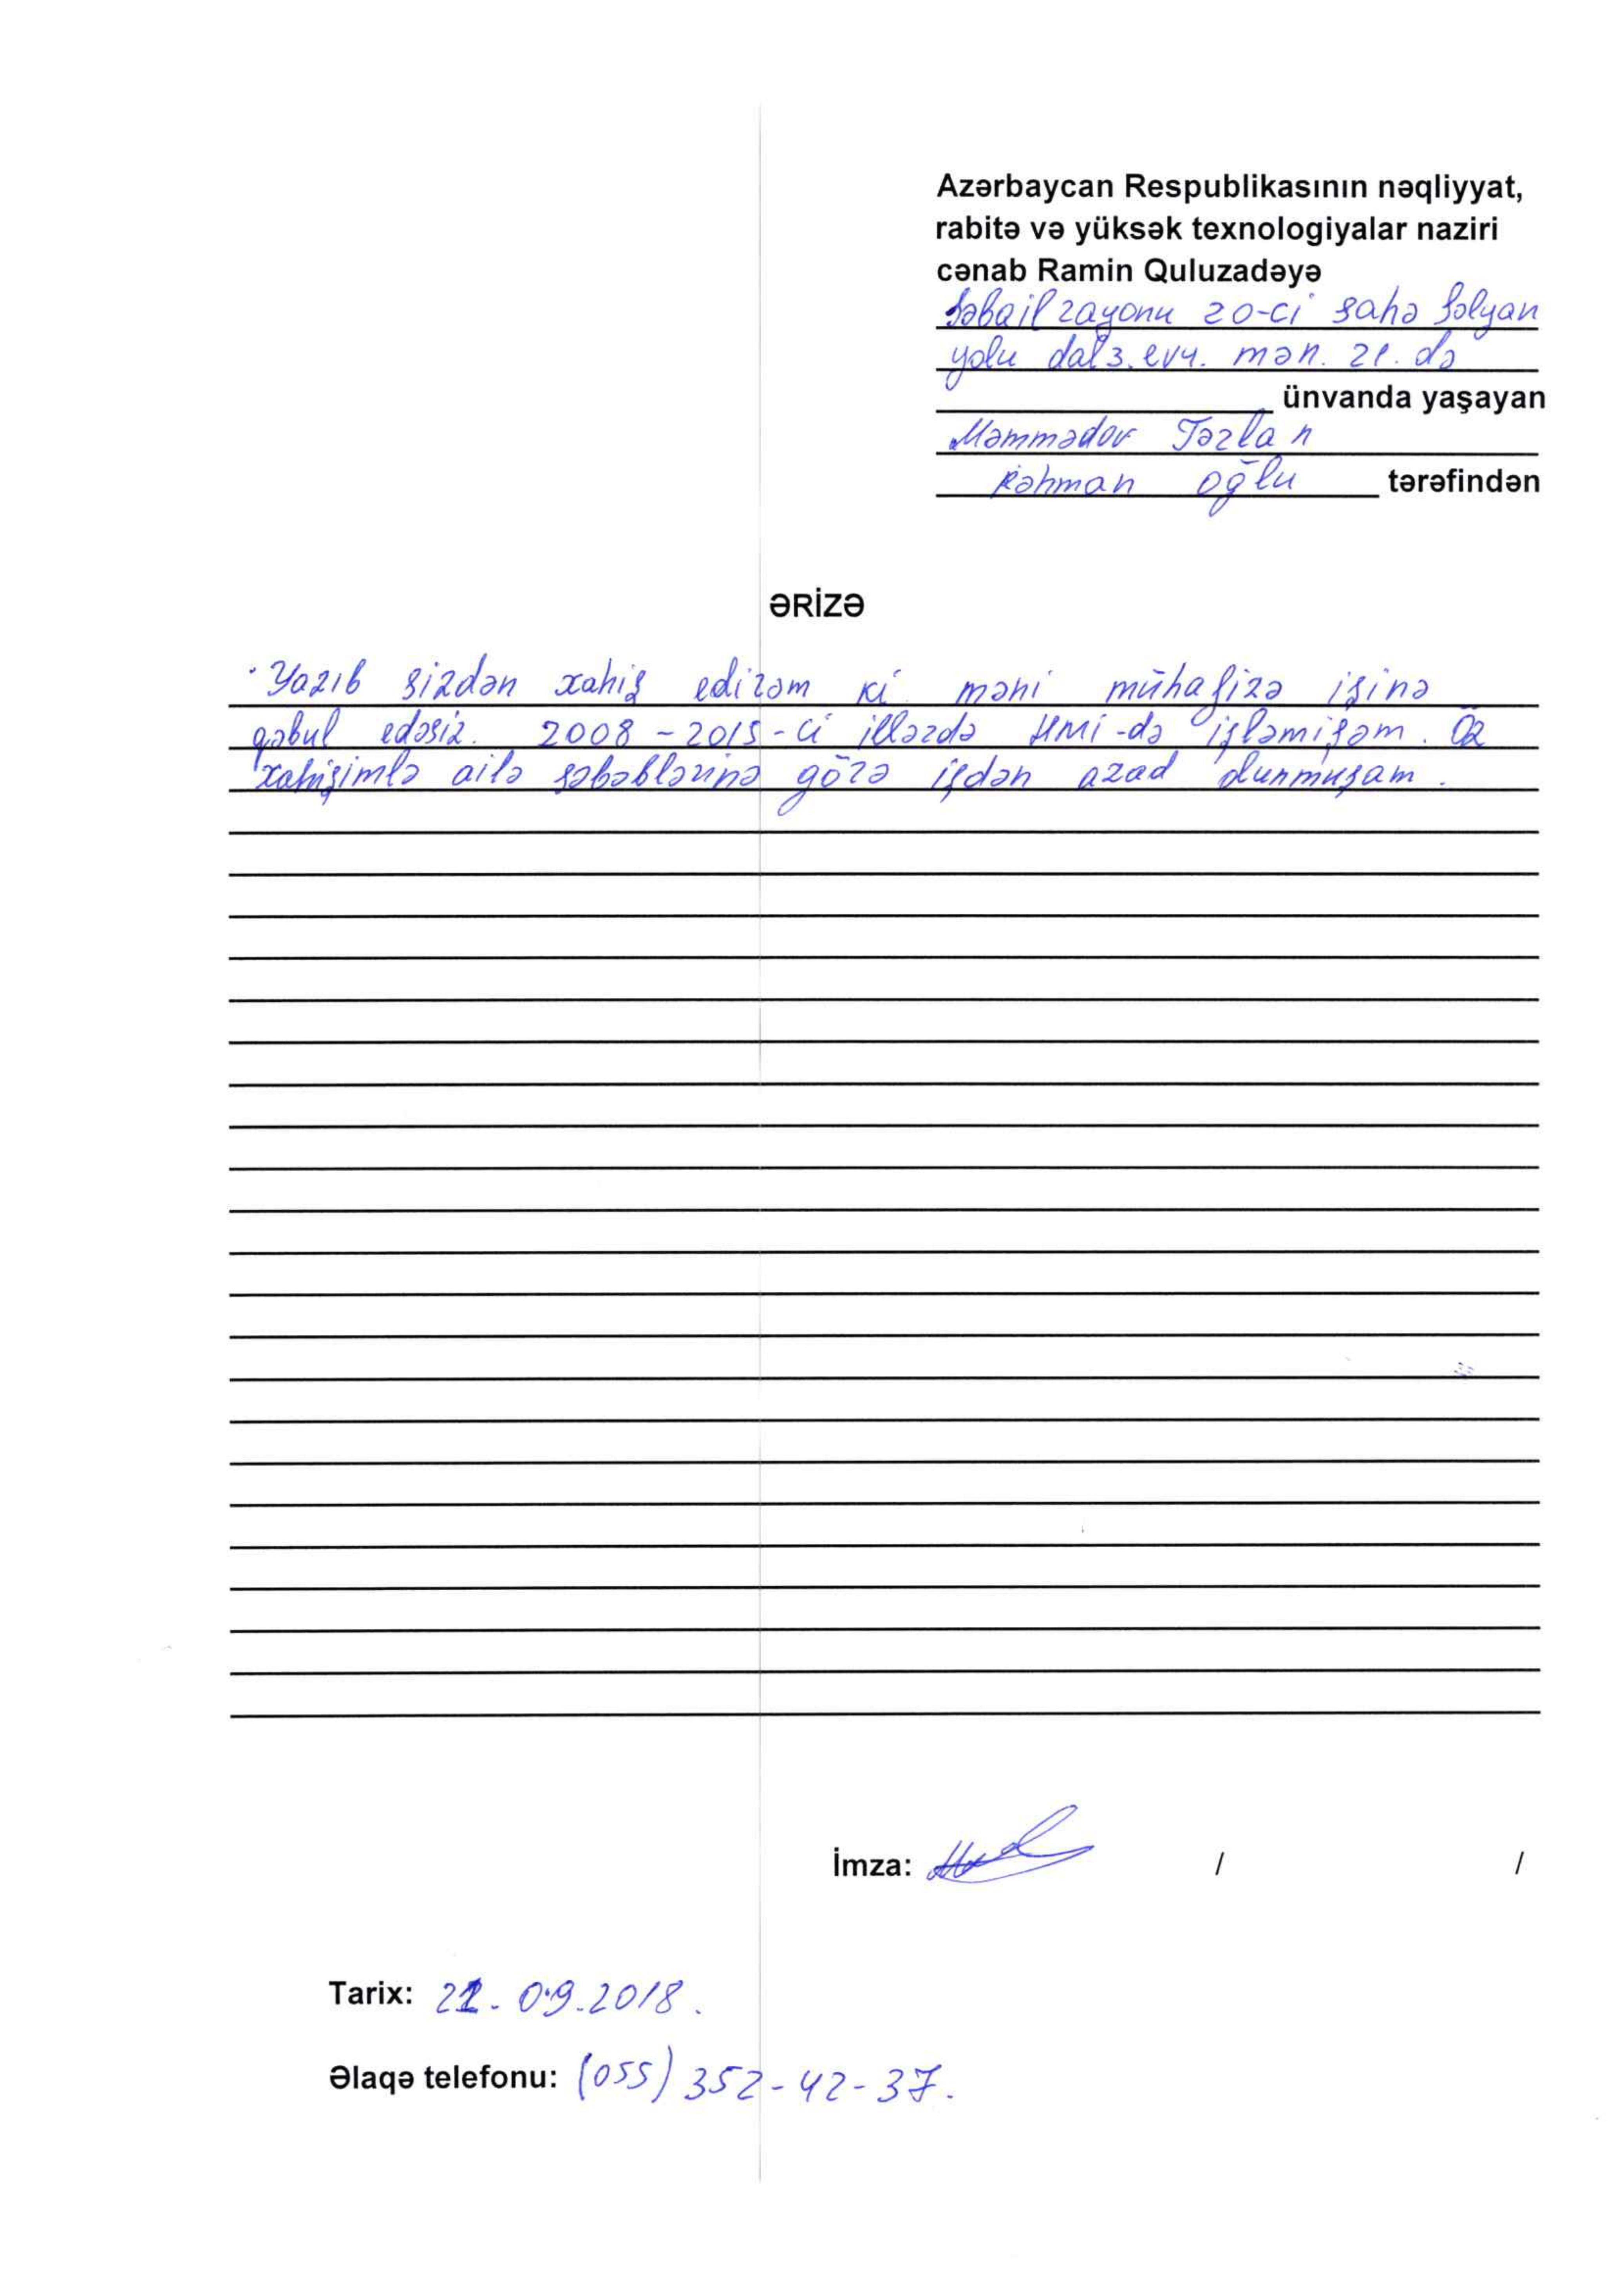 Azərbaycan Respublikasının nəqliyyat,
rabitə və yüksək texnologiyalar naziri
cənab Ramin Quluzadəyə
Səbail rayonu 20-ci sahə Salyan
yolu dal 3. ev 4. mən. 21. də
ünvanda yaşayan
Məmmədov Tərlan
Rəhman oğlu tərəfindən
ƏRİZƏ
Yazıb sizdən xahiş edirəm ki məni mühafizə işinə
qəbul edəsiz. 2008 - 2015 - ci illərdə HMİ-də işləmişəm. Öz
xahişimlə ailə səbəblərinə görə işdən azad olunmuşam.
İmza: / /
Tarix: 21. 09.2018.
Əlaqə telefonu: (055) 352-42-37.